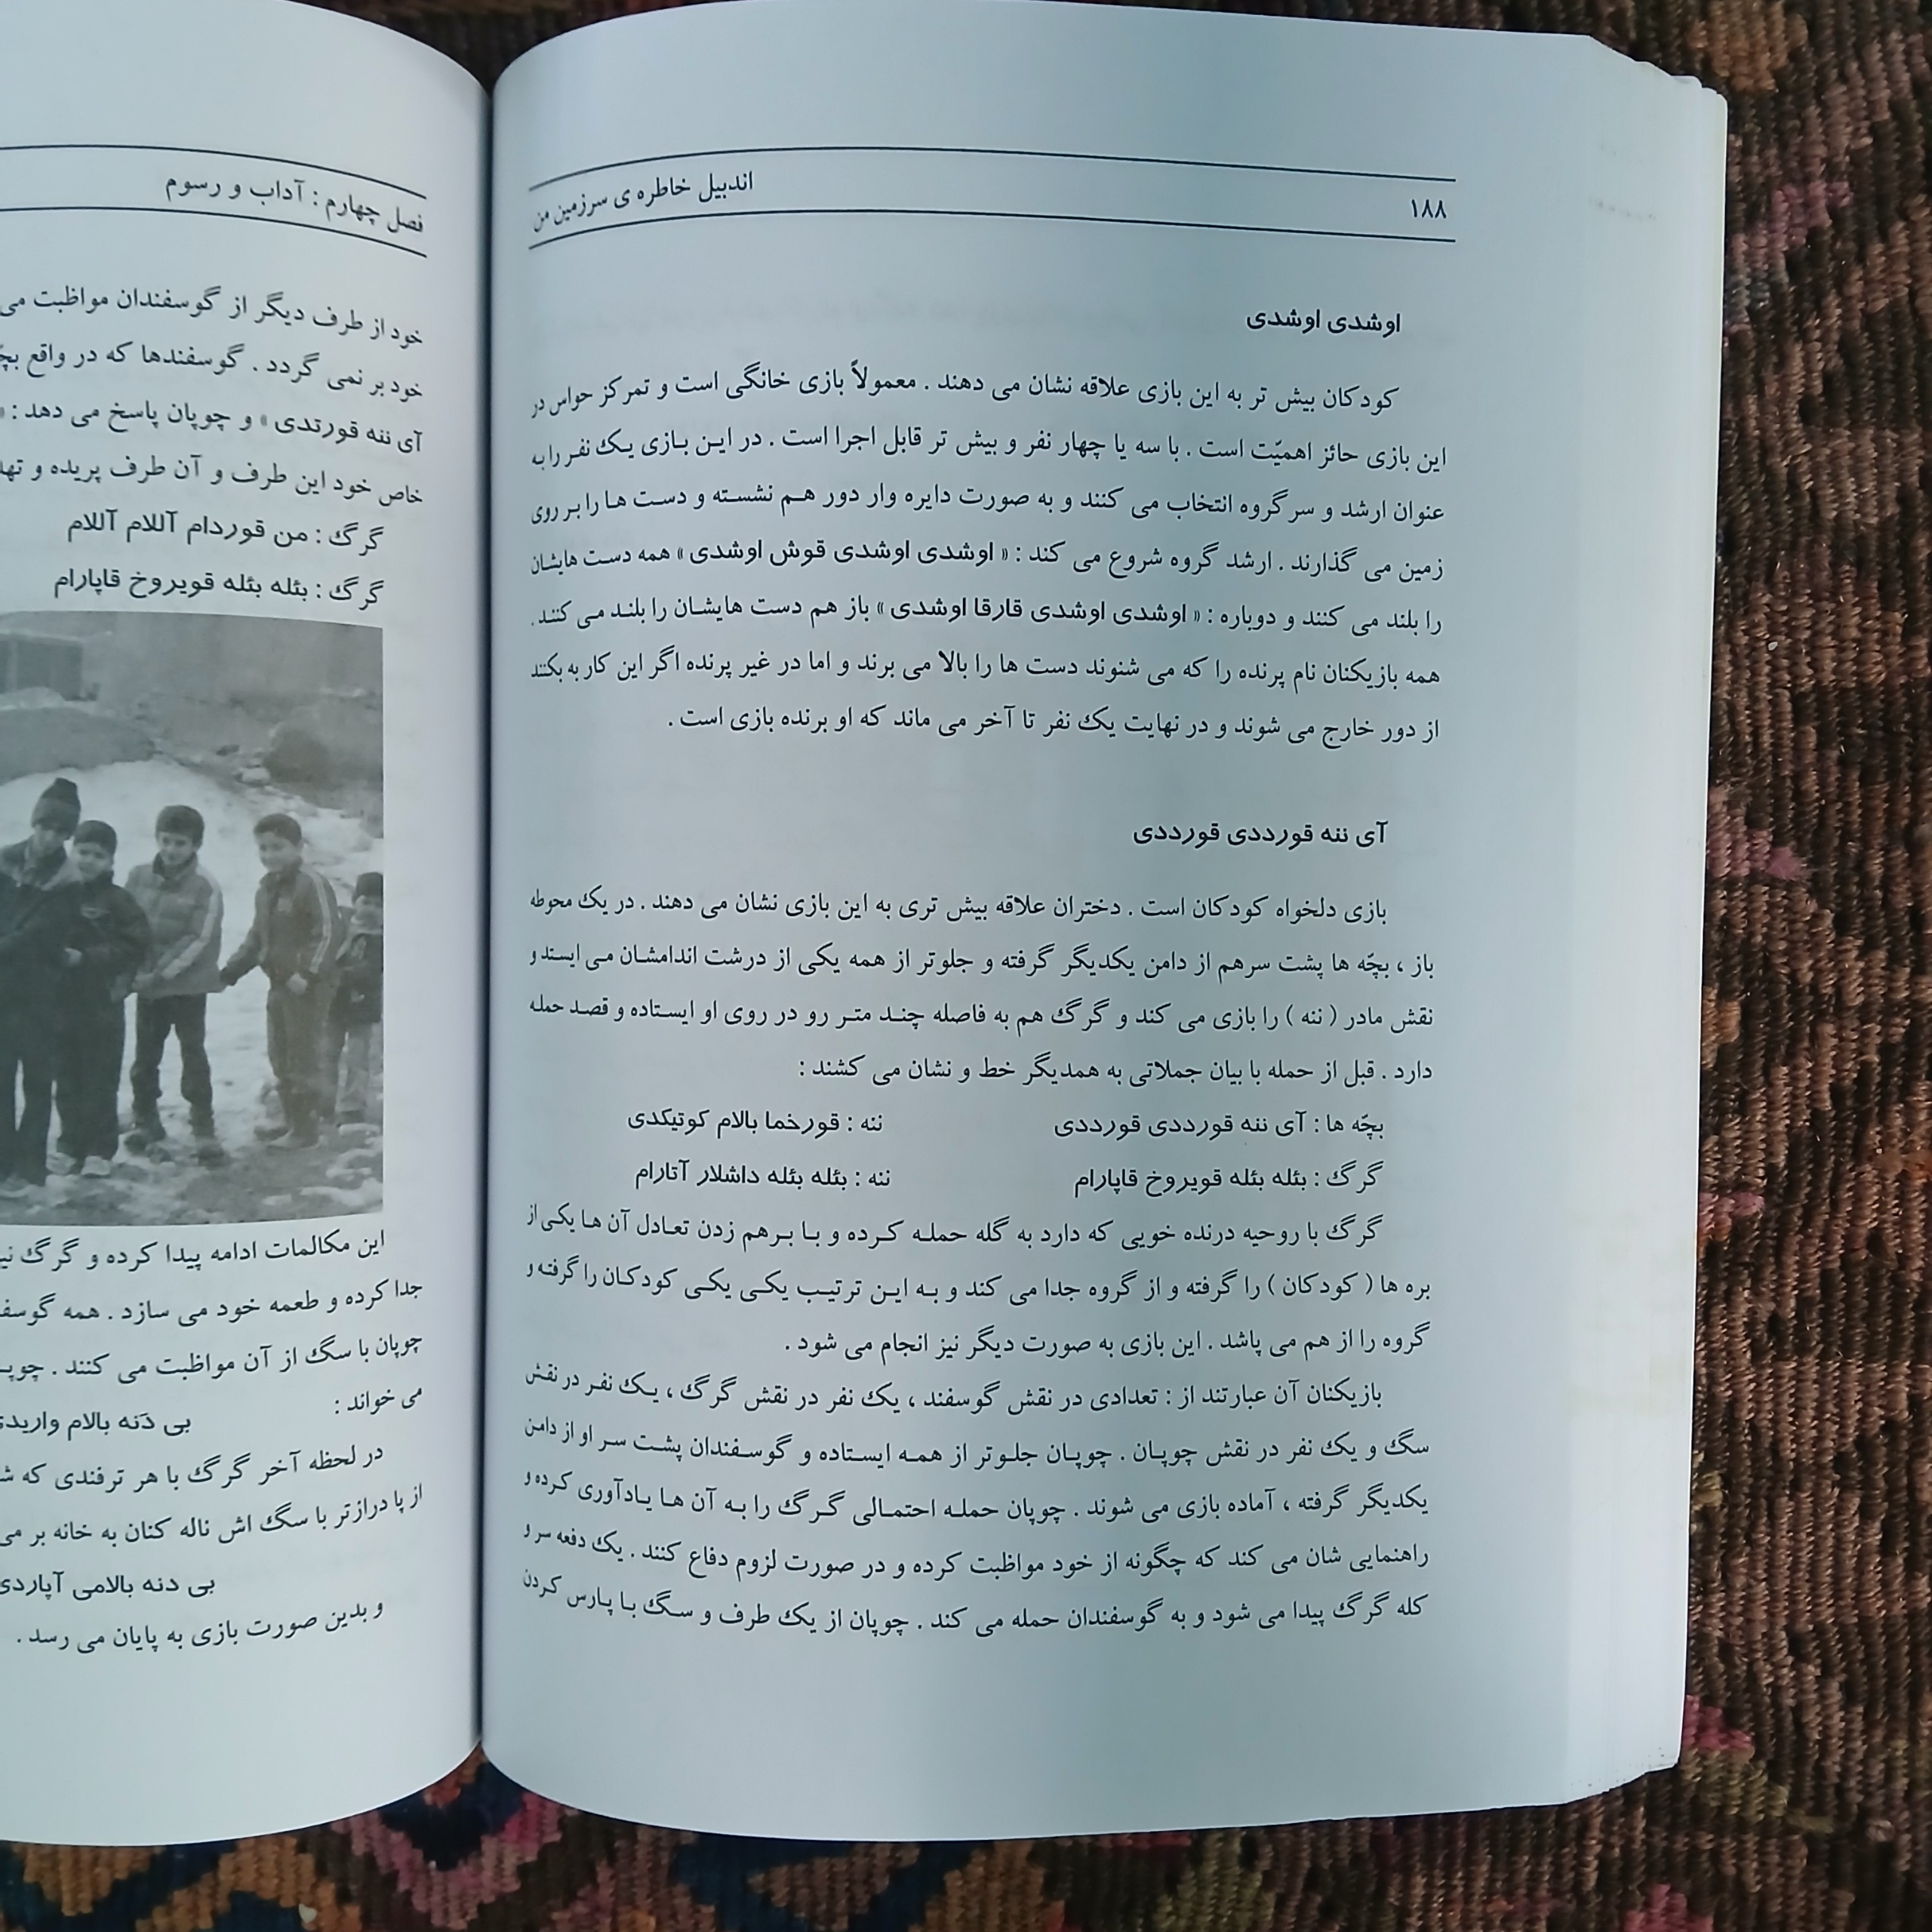 ۱۸۸
اندبیل خاطره ی سرزمین من
اوشدی اوشدی
کودکان بیش تر به این بازی علاقه نشان می دهند . معمولاً بازی خانگی است و تمرکز حواس در
این بازی حائز اهمیّت است . با سه یا چهار نفر و بیش تر قابل اجرا است . در این بازی یک نفر را به
عنوان ارشد و سرگروه انتخاب می کنند و به صورت دایره وار دور هم نشسته و دست ها را بر روی
زمین می گذارند . ارشد گروه شروع می کند : « اوشدی اوشدی قوش اوشدی » همه دست هایشان
را بلند می کنند و دوباره : « اوشدی اوشدی قارقا اوشدی » باز هم دست هایشان را بلند می کنند .
همه بازیکنان نام پرنده را که می شنوند دست ها را بالا می برند و اما در غیر پرنده اگر این کار به بکنند
از دور خارج می شوند و در نهایت یک نفر تا آخر می ماند که او برنده بازی است .
آی ننه قورددی قورددی
بازی دلخواه کودکان است . دختران علاقه بیش تری به این بازی نشان می دهند . در یک محوطه
باز ، بچّه ها پشت سرهم از دامن یکدیگر گرفته و جلوتر از همه یکی از درشت اندامشان می ایستد و
نقش مادر ( ننه ) را بازی می کند و گرگ هم به فاصله چند متر رو در روی او ایستاده و قصد حمله
دارد . قبل از حمله با بیان جملاتی به همدیگر خط و نشان می کشند :
بچّه ها : آی ننه قورددی قورددی ننه : قورخما بالام کوتیکدی
گرگ : بئله بئله قویروخ قاپارام ننه : بئله بئله داشلار آتارام
گرگ با روحیه درنده خویی که دارد به گله حمله کرده و با برهم زدن تعادل آن ها یکی از
بره ها ( کودکان ) را گرفته و از گروه جدا می کند و به این ترتیب یکی یکی کودکان را گرفته و
گروه را از هم می پاشد . این بازی به صورت دیگر نیز انجام می شود .
بازیکنان آن عبارتند از : تعدادی در نقش گوسفند ، یک نفر در نقش گرگ ، یک نفر در نقش
سگ و یک نفر در نقش چوپان . چوپان جلوتر از همه ایستاده و گوسفندان پشت سر او از دامن
یکدیگر گرفته ، آماده بازی می شوند . چوپان حمله احتمالی گرگ را به آن ها یادآوری کرده و
راهنمایی شان می کند که چگونه از خود مواظبت کرده و در صورت لزوم دفاع کنند . یک دفعه سر و
کله گرگ پیدا می شود و به گوسفندان حمله می کند . چوپان از یک طرف و سگ با پارس کردن
فصل چهارم : آداب و رسوم
خود از طرف دیگر از گوسفندان مواظبت می
خود بر نمی گردد . گوسفندها که در واقع
آی ننه قورتدی » و چوپان پاسخ می دهد : «
خاص خود این طرف و آن طرف پریده و
گرگ : من قوردام آللام آللام
گرگ : بئله بئله قویروخ قاپارام
این مکالمات ادامه پیدا کرده و گرگ
جدا کرده و طعمه خود می سازد . همه
چوپان با سگ از آن مواظبت می کنند .
می خواند :
بی دَنه بالام
در لحظه آخر گرگ با هر ترفندی که
از پا درازتر با سگ اش ناله کنان به خانه بر می
بی دنه بالامی آپاردی
و بدین صورت بازی به پایان می رسد .